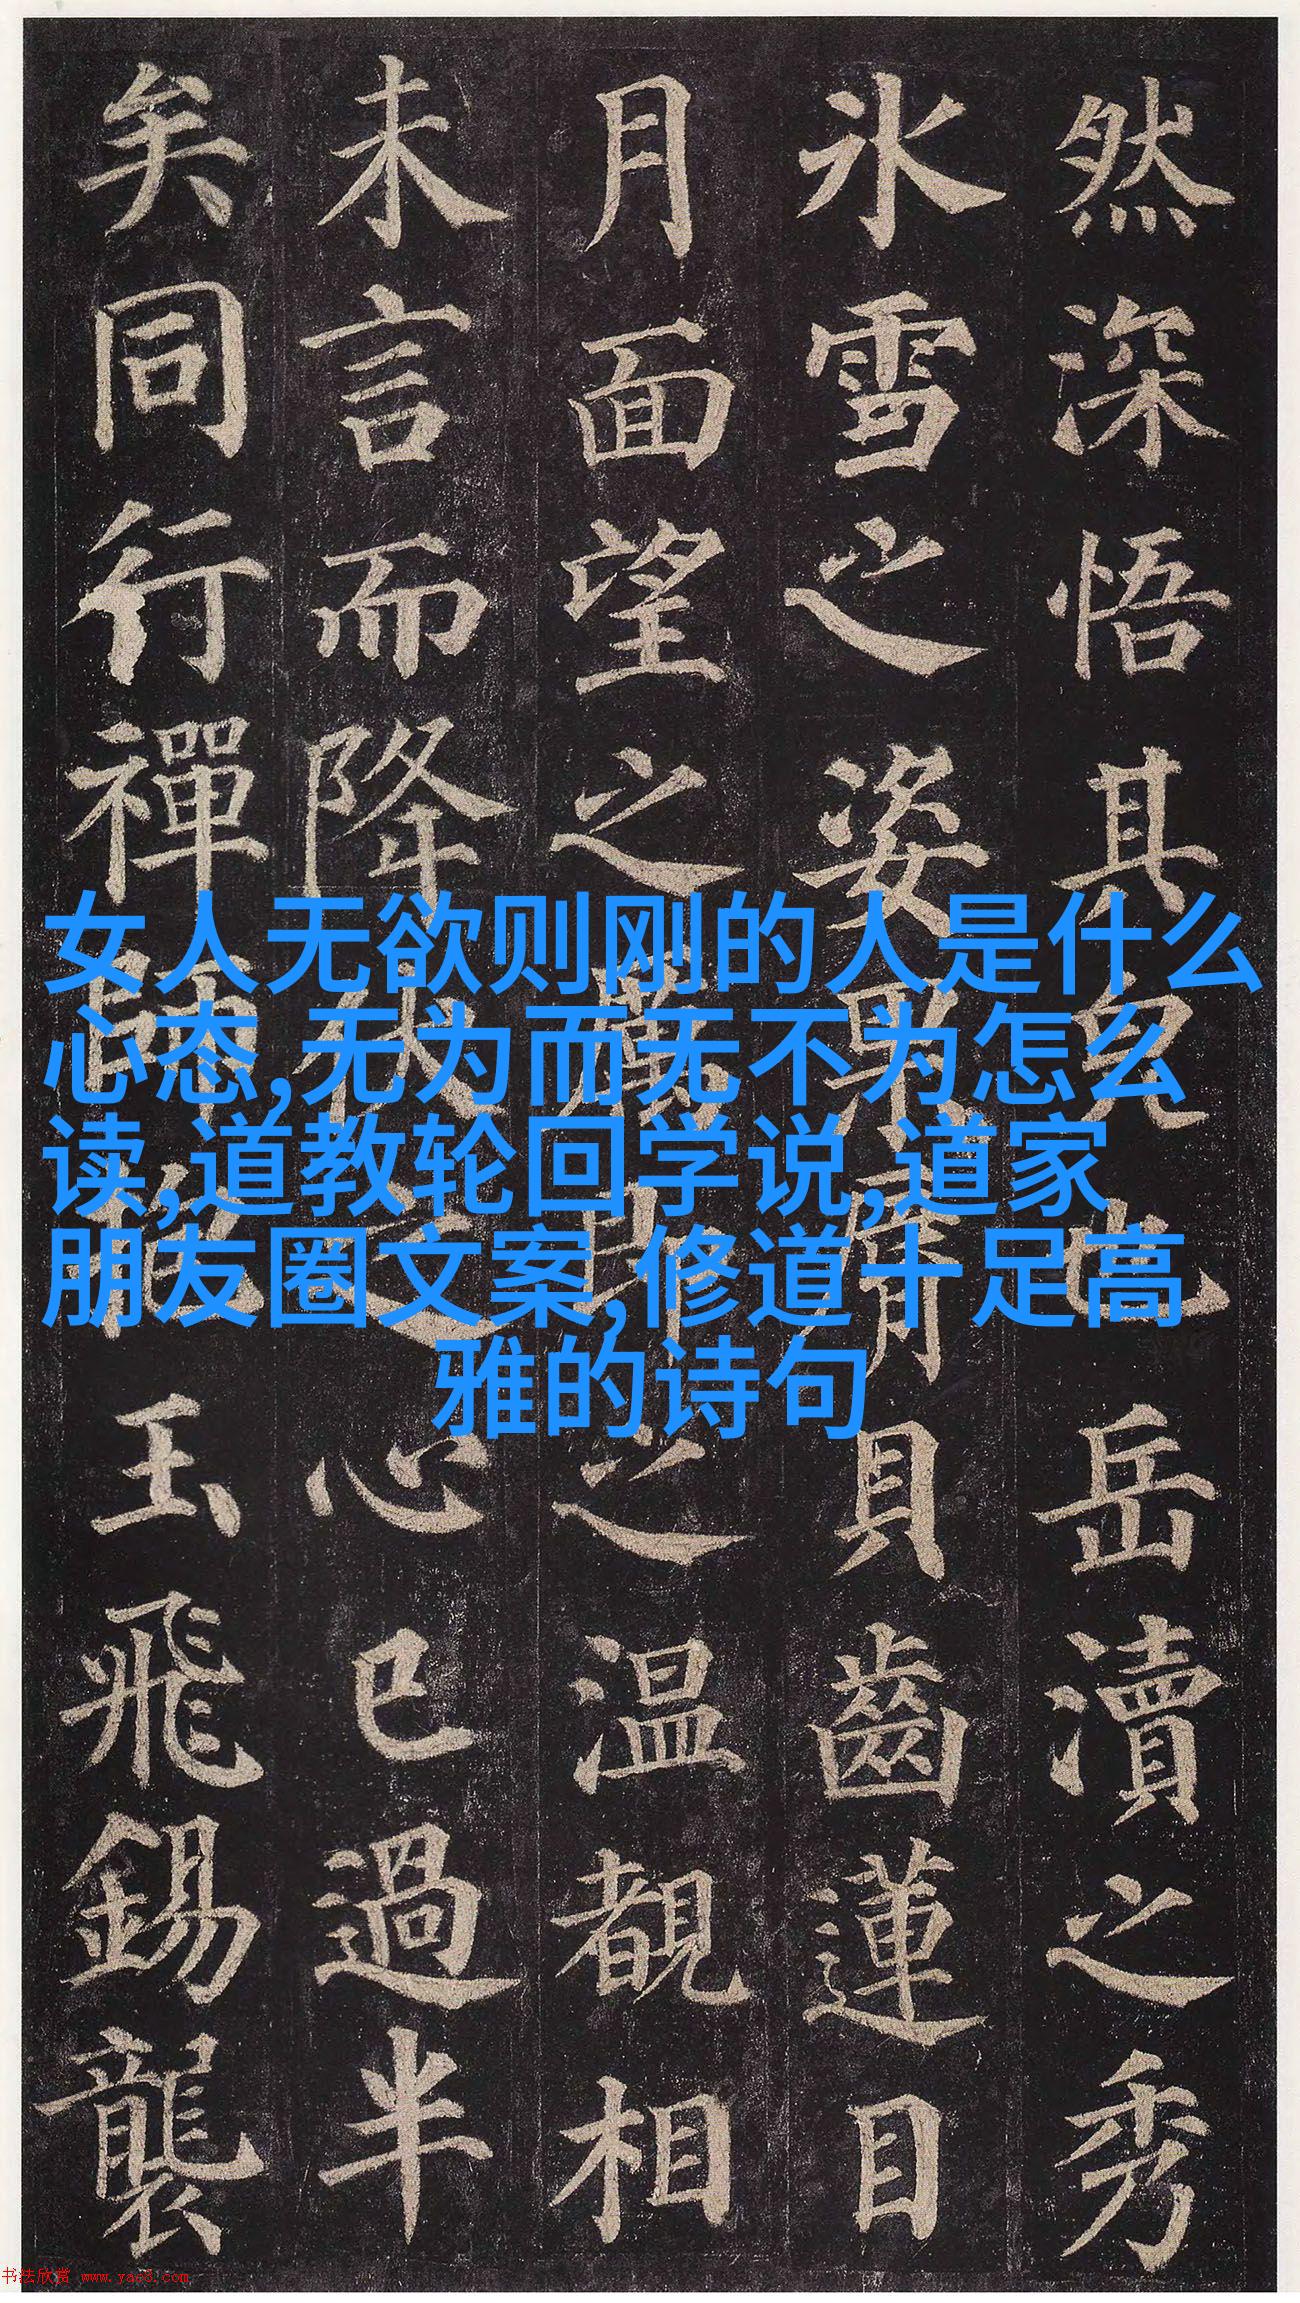 然深悟其皃也岳瀆之秀
氷雪之姿果脣貝齒蓮目
月面望之厲即之温覩相
未言而降伏之心已過半
矣同行禪師抱玉飛錫襲
女人无欲则刚的人是什么
心态,无为而无不为怎么
读,道教轮回学说,道家
朋友圈文案,修道十足高
雅的诗句
书法欣赏 www.yac8.com